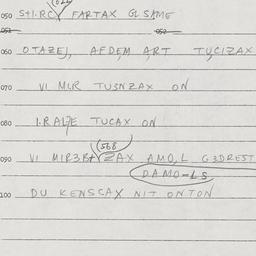 050 S+I.RC FARTAX GL SAME
052
060 OTAZEJ, AFDEM ART TUCIZAX
070 VI MLR TU3NZAX ON
080 TUCAX ON
(568)
090 VI MIR3B+ ZAX AMO,L G3DREST
DAMO-LS
100 DU KENSCAX NIT ONTON